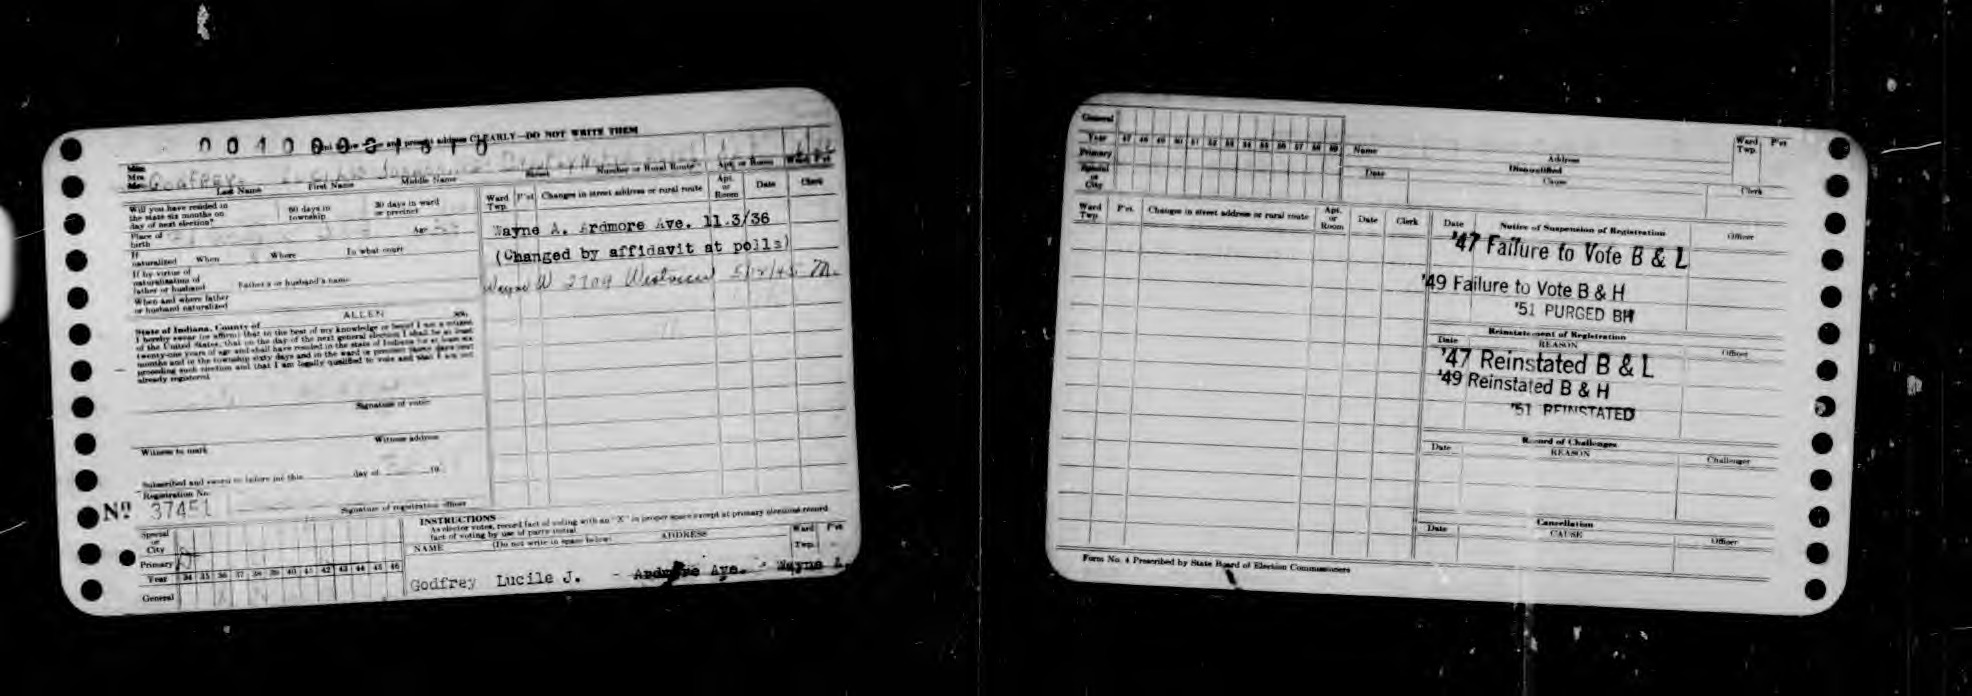 and present address CLEARLY—DO NOT WRITE THEM
Miss
Mrs.
Mr. GODFREY
Last Name First Name Middle Name Street Number or Rural Route Apt. or Room Ward Pct.
Will you have resided in
the state six months on
day of next election?
60 days in
township
30 days in ward
or precinct
Place of
birth
Age
If
naturalized When Where In what court
If by virtue of
naturalization of
father or husband
Father's or husband's name
When and where father
or husband naturalized
State of Indiana, County of ALLEN SS:
I hereby swear (or affirm) that to the best of my knowledge or belief I am a citizen
of the United States, that on the day of the next general election I shall be at least
twenty-one years of age and shall have resided in the state of Indiana for at least six
months and in the township sixty days and in the ward or precinct thirty days next
preceding such election and that I am legally qualified to vote and that I am not
already registered.
Signature of voter
Witness to mark Witness address
Subscribed and sworn to before me this day of 19
Registration No.
Nº 37451
Signature of registration officer
Ward
Twp.
P'ct. Changes in street address or rural route
Apt.
or
Room
Date Clerk
Wayne A. Ardmore Ave. 11.3/36
(Changed by affidavit at polls)
Wayne W 2709 Westview
Special
or
City
Primary
Year 34 35 36 37 38 39 40 41 42 43 44 45 46
General
INSTRUCTIONS
As elector votes, record fact of voting with an "X" in proper space except at primary elections record
fact of voting by use of party initial.
NAME (Do not write in space below) ADDRESS
Ward
Twp.
P'ct.
Godfrey Lucile J. - Ardmore Ave. - Wayne A.
General
Year 47 48 49 50 51 52 53 54 55 56 57 58 59
Primary
Special
or
City
Name Address
Ward
Twp.
P'ct.
Disqualified
Date Cause Clerk
Ward
Twp.
P'ct. Changes in street address or rural route
Apt.
or
Room
Date Clerk
Date Notice of Suspension of Registration Officer
'47 Failure to Vote B & L
'49 Failure to Vote B & H
'51 PURGED BH
Reinstatement of Registration
Date REASON Officer
'47 Reinstated B & L
'49 Reinstated B & H
'51 REINSTATED
Record of Challenges
Date REASON Challenger
Cancellation
Date CAUSE Officer
Form No. 4 Prescribed by State Board of Election Commissioners